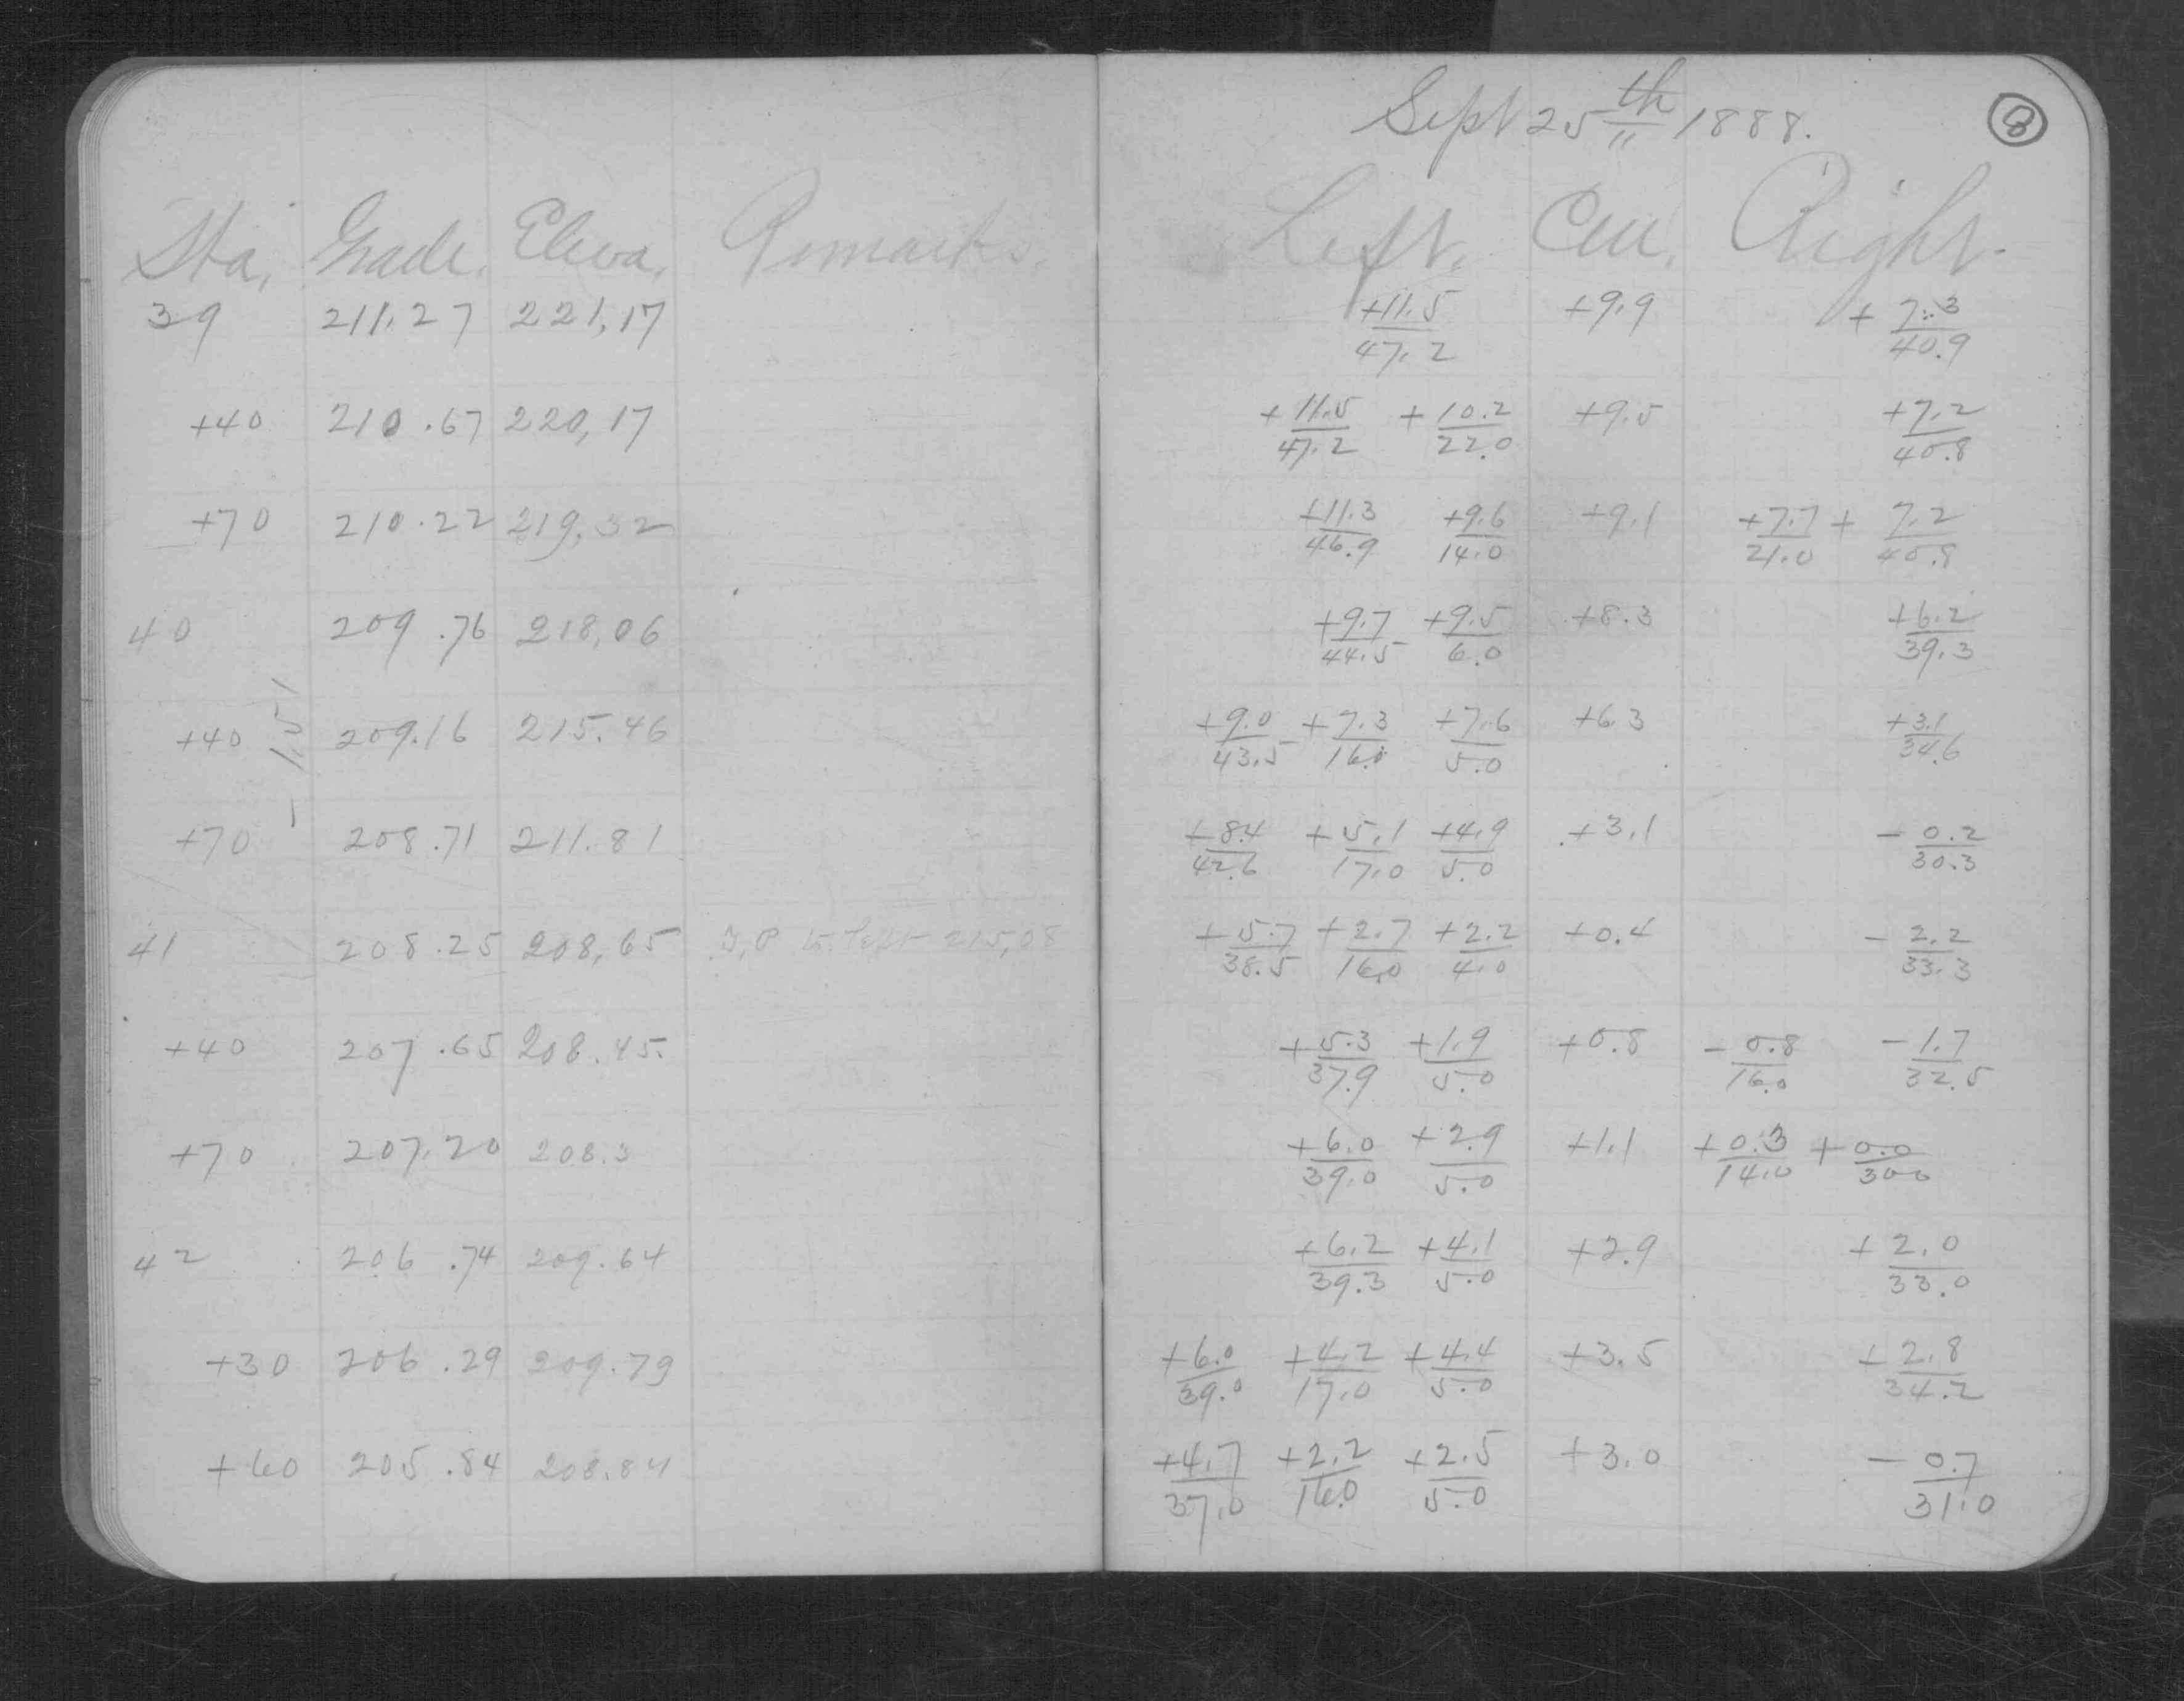 Sta. Grade. Eleva. Remarks.
39 211.27 221.17
+40 210.67 220.17
+70 210.22 219.32
40 209.76 218.06
- 1.51
+40 209.16 215.46
+70 208.71 211.81
41 208.25 208.65 215.08
+40 207.65 208.45
+70 207.20 208.3
42 206.74 209.64
+30 206.29 209.79
+60 205.84 208.84
Sept 25th 1888.
8
Left. Cen. Right.
+11.5 +9.9 +7.3
47.2 40.9
+11.5 +10.2 +9.5 +7.2
47.2 22.0 40.8
+11.3 +9.6 +9.1 +7.7 + 7.2
46.9 14.0 21.0 40.8
+9.7 +9.5 +8.3 +6.2
44.5 6.0 39.3
+9.0 +7.3 +7.6 +6.3 +3.1
43.5 16.0 5.0 34.6
+8.4 +5.1 +4.9 +3.1 - 0.2
42.6 17.0 5.0 30.3
+5.7 +2.7 +2.2 +0.4 - 2.2
38.5 16.0 4.0 33.3
+5.3 +1.9 +0.8 - 0.8 - 1.7
37.9 5.0 16.0 32.5
+6.0 +2.9 +1.1 +0.3 + 0.0
39.0 5.0 14.0 300
+6.2 +4.1 +2.9 + 2.0
39.3 5.0 33.0
+6.0 +4.2 +4.4 +3.5 + 2.8
39.0 17.0 5.0 34.2
+4.7 +2.2 +2.5 +3.0 - 0.7
37.0 16.0 5.0 31.0